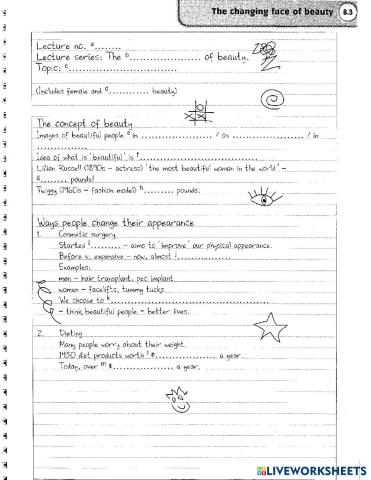 The changing face of beauty 8.3
Lecture no. a........
Lecture series: The b.................... of beauty.
Topic: c..............................
(Includes female and d............ beauty)
The concept of beauty
Images of beautiful people e in .................... / on .................... / in
................
Idea of what is 'beautiful' is f....................................
Lillian Russell (1890s – actress) 'the most beautiful woman in the world' –
g......... pounds!
Twiggy (1960s – fashion model) h......... pounds.
Ways people change their appearance
1. Cosmetic surgery
Started i......... – aims to 'improve' our physical appearance.
Before v. expensive – now, almost j........................
Examples:
men – hair transplant, pec implant
women – facelifts, tummy tucks
We choose to k................................................
– think beautiful people = better lives.
2. Dieting
Many people worry about their weight.
1950 diet products worth l $.................... a year.
Today, over m $.................... a year.
LIVEWORKSHEETS